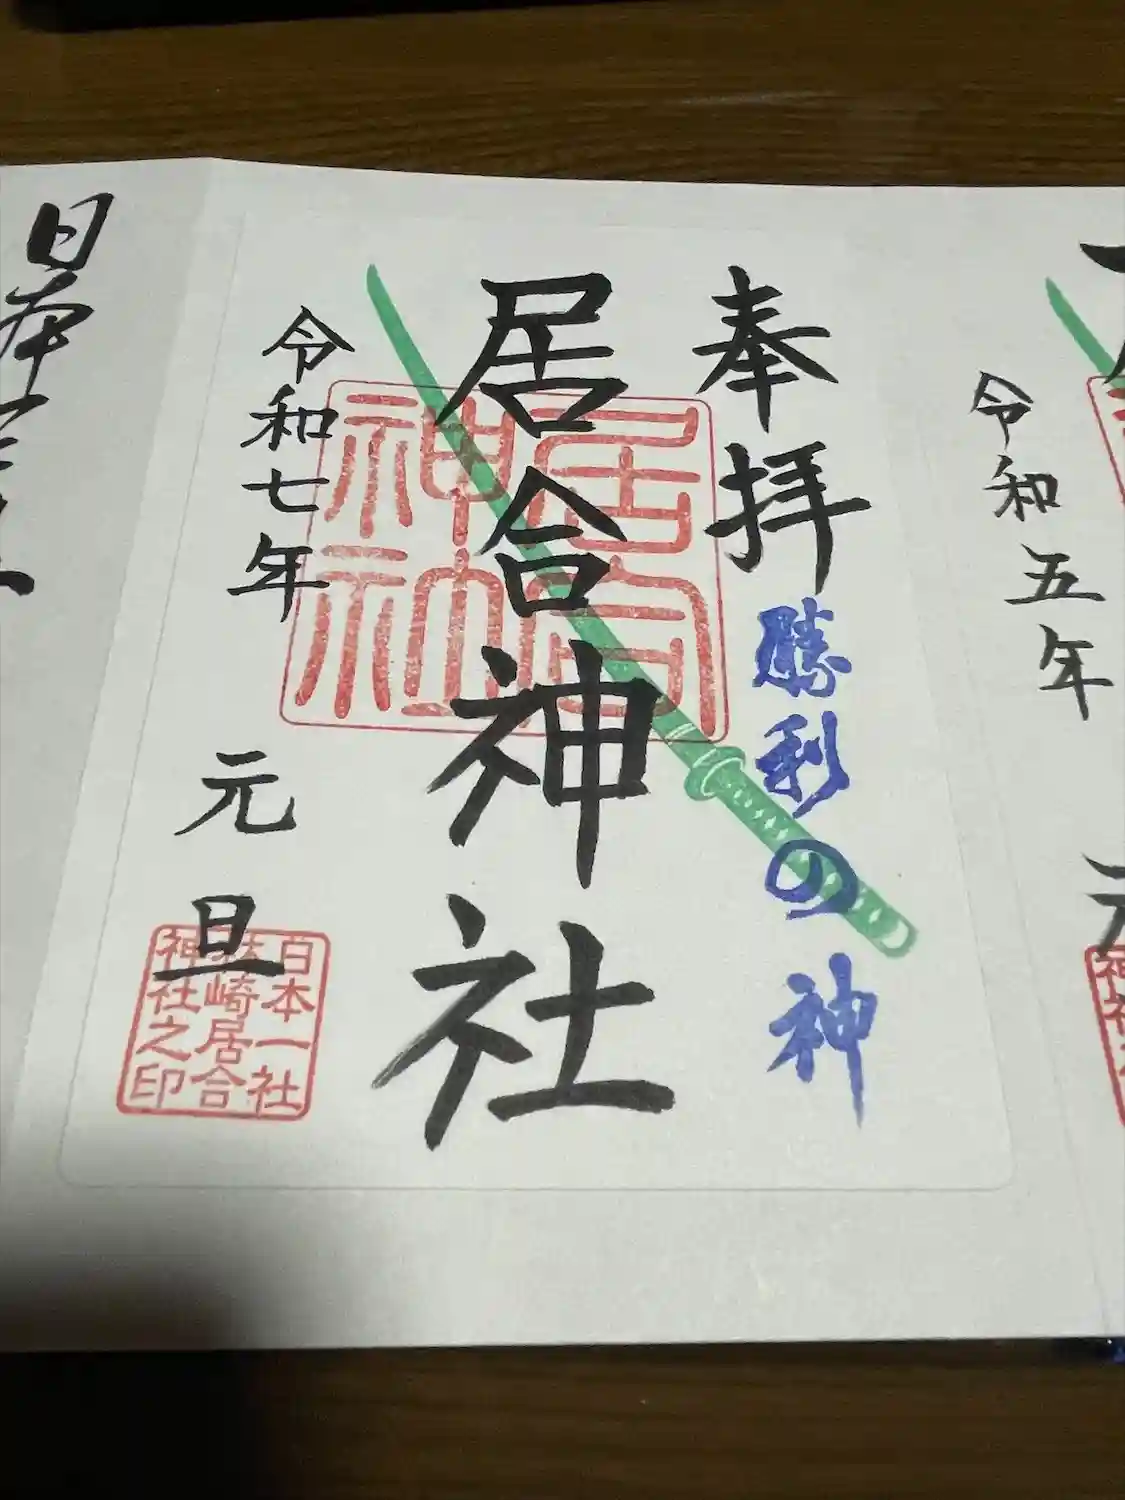 奉拝
勝利の神
居合神社
居合
神社
令和七年
元旦
日本一社
林崎居合
神社之印
令和五年
元
日本